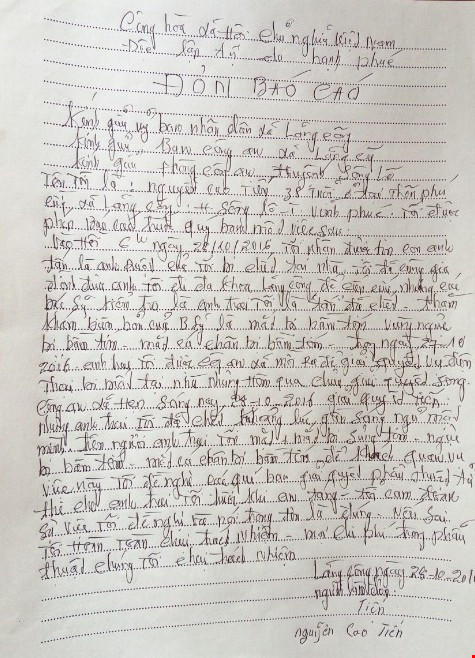 Cộng hòa xã hội chủ nghĩa Việt Nam
Độc lập tự do hạnh phúc
ĐƠN BÁO CÁO
Kính gửi ủy ban nhân dân xã Lãng công
Kính gửi Ban công an xã Lãng công
Kính gửi phòng công an huyện Sông Lô
Tên Tôi là: nguyễn cao Tiến 38 Tuổi ở tại thôn phú
xã Lãng công H Sông lô T Vĩnh phúc Tôi được
phép báo cáo quý ban một việc sau
Vào Hồi ngày 28/10/2016 Tôi nhận được tin con anh
là anh Tôi bị chết tại nhà Tôi đã cùng gia
đình đưa anh Tôi đi đa khoa Lãng công để cấp cứu nhưng các
bác Sỹ kiểm tra là anh trai Tôi là đã chết
khám của B.Sỹ là mắt bị bầm tím vùng ngực
bị bầm tím mắt cá chân bị bầm tím ngày 27-10
2016 anh trai Tôi được công an xã mời ra để giải quyết vụ
mất tại nhà nhưng Hôm qua chưa giải quyết song
công an xã Hẹn Sáng nay 28-10-2016 giải quyết
nhưng anh trai Tôi đã chết lúc gần sáng
mình Hiện người anh trai Tôi mắt Sưng tím ngực
bị bầm tím mắt cá chân bị bầm tím để khách quan vụ
việc này Tôi đề nghị các quý ban giải quyết phẫu thuật tử
thi cho anh trai Tôi trước khi an táng Tôi cam đoan
Sự việc Tôi đề nghị và nội dung trên là đúng nếu sai
Tôi Hoàn Toàn chịu trách nhiệm mọi chi phí trong phẫu
thuật chúng Tôi chịu trách nhiệm
Lãng Công ngày 28-10-2016
người
Tiến
nguyễn Cao Tiến